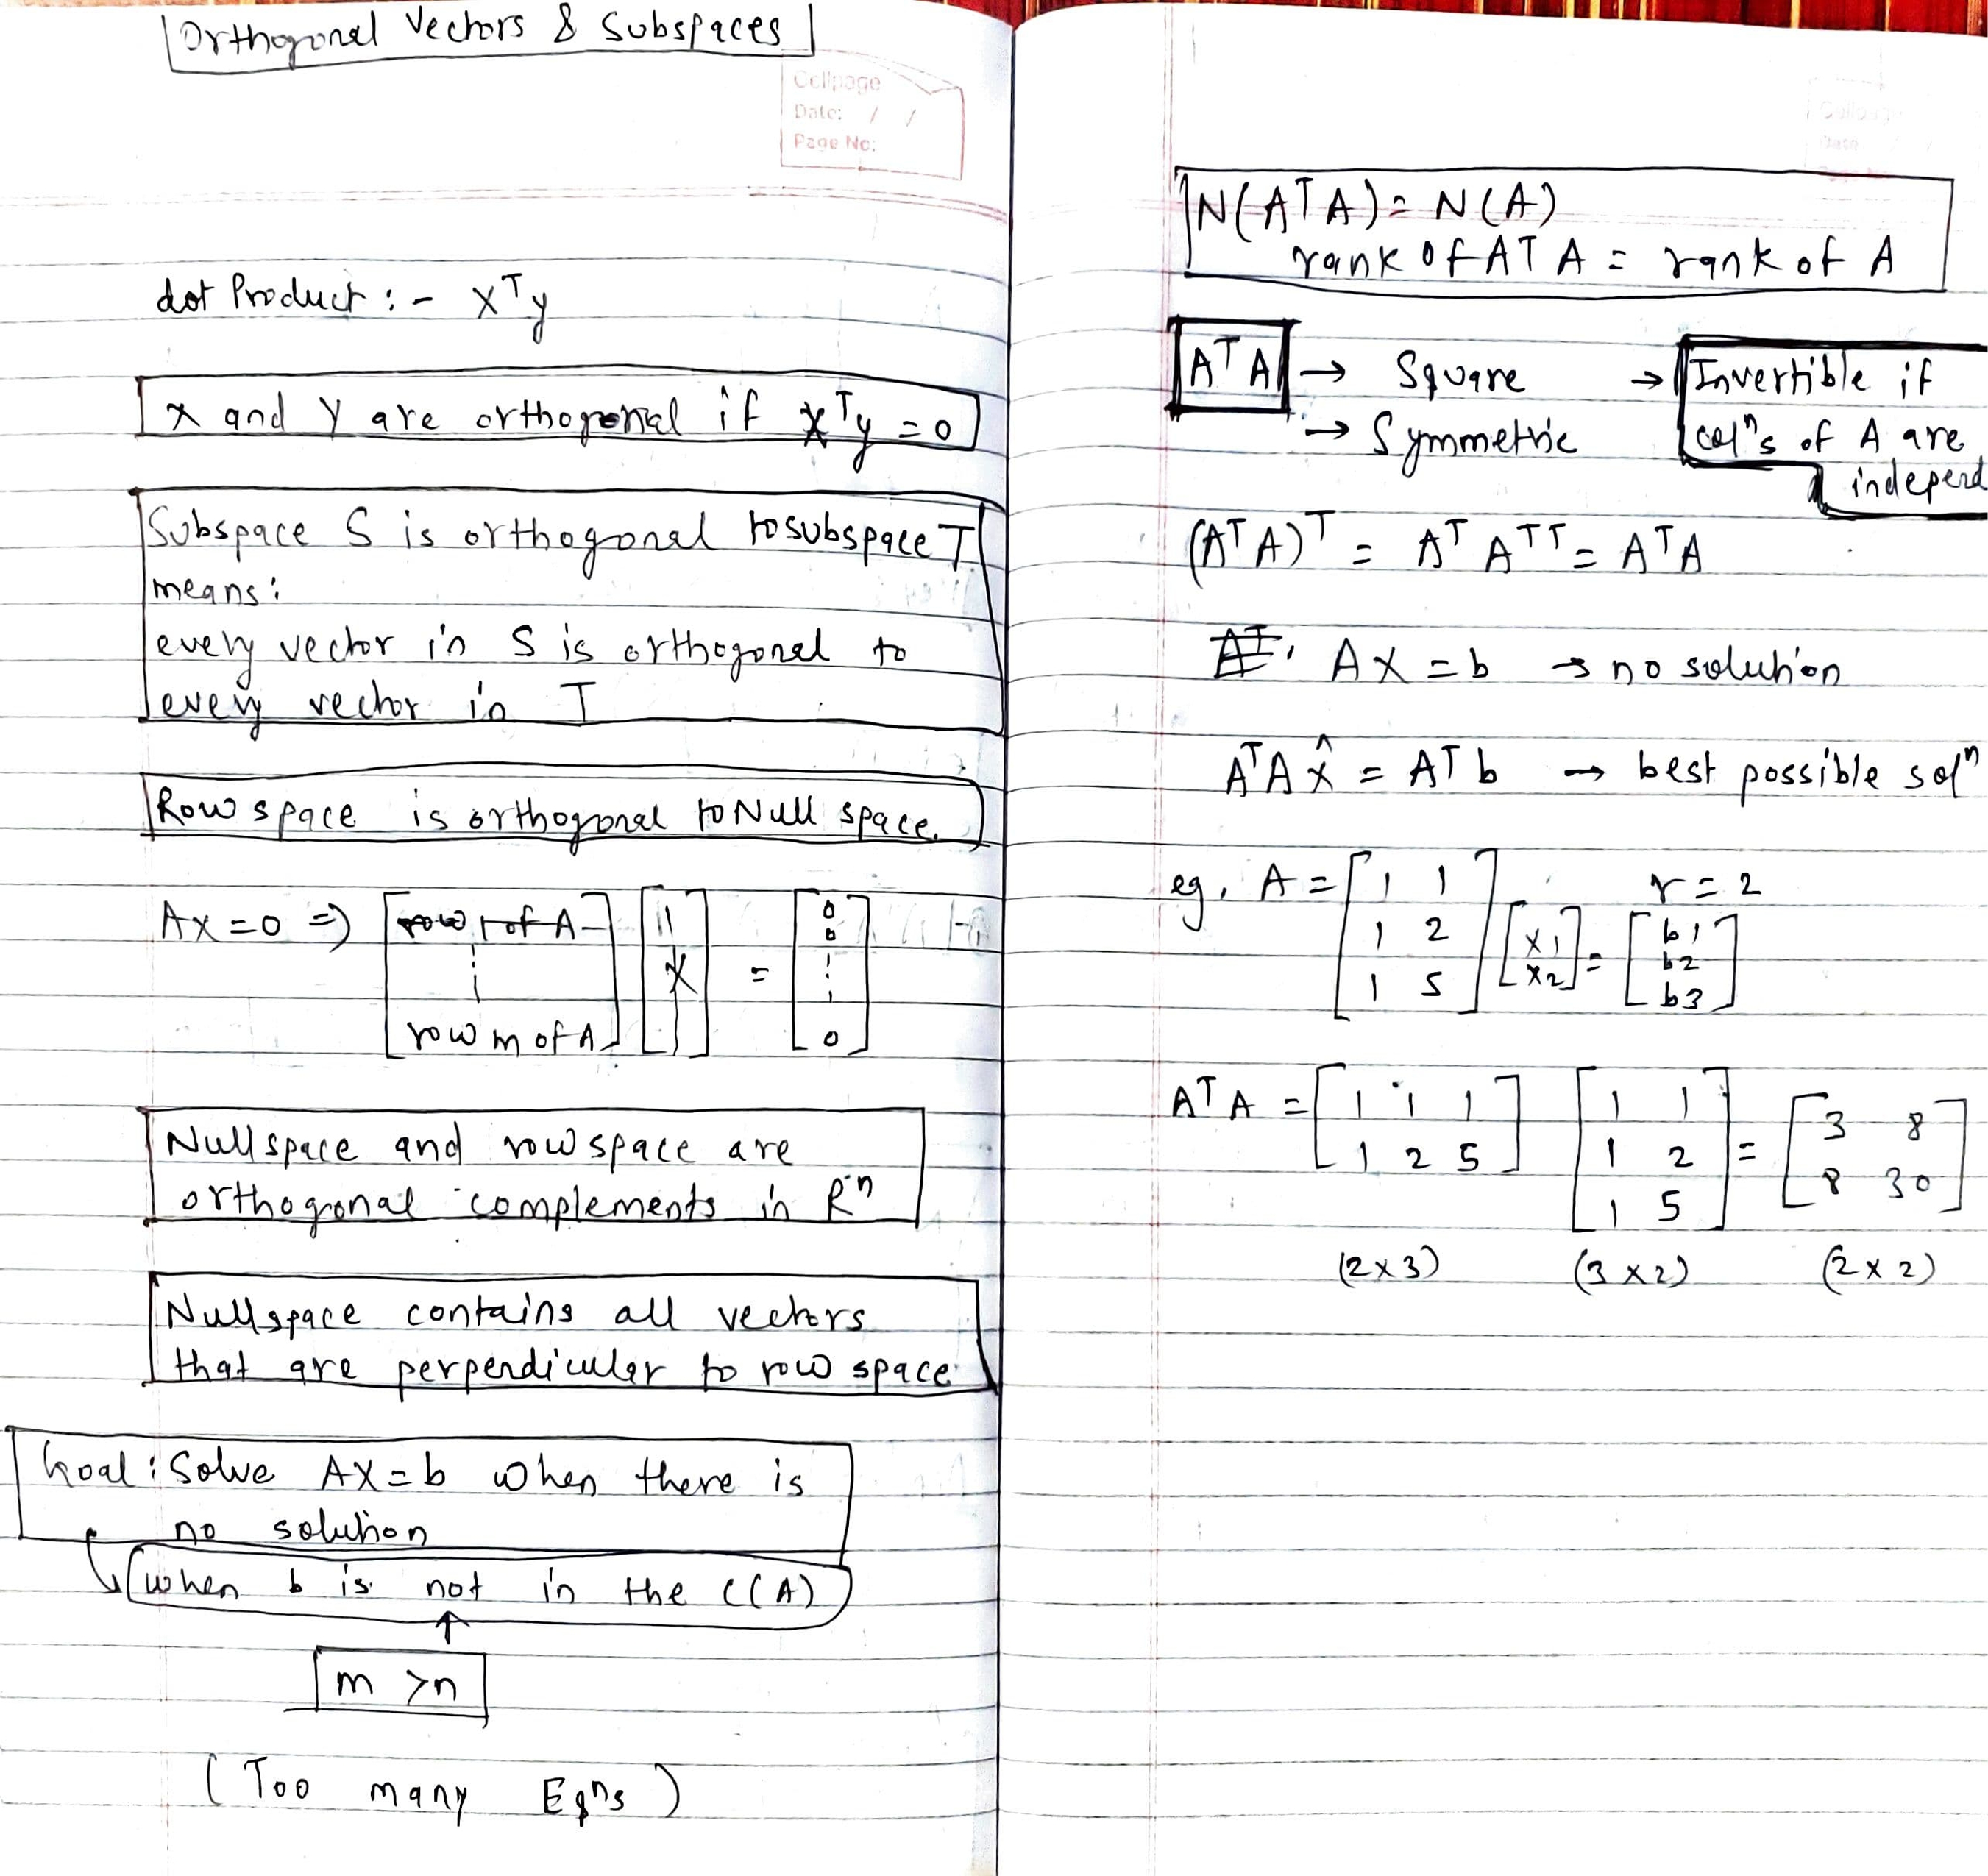 Orthogonal Vectors & Subspaces
Cellpage
Date: / /
Page No:
dot Product :- x^T y
x and y are orthogonal if x^T y = 0
Subspace S is orthogonal to subspace T
means:
every vector in S is orthogonal to
every vector in T
Row space is orthogonal to Null space.
Ax = 0 => [row 1 of A ⋮ row m of A] [x] = [0 0 ⋮ 0]
Nullspace and rowspace are
orthogonal complements in R^n
Nullspace contains all vectors
that are perpendicular to row space
Goal: Solve Ax = b when there is
no solution
when b is not in the C(A)
↑
m > n
(Too many Eqns)
N(A^T A) = N(A)
rank of A^T A = rank of A
A^T A → Square → Invertible if
→ Symmetric col^n s of A are
independ
(A^T A)^T = A^T A^TT = A^T A
Ax = b → no solution
A^T A x̂ = A^T b → best possible sol^n
r = 2
eg, A = [1 1; 1 2; 1 5] [x1; x2] = [b1; b2; b3]
A^T A = [1 1 1; 1 2 5] [1 1; 1 2; 1 5] = [3 8; 8 30]
(2x3) (3x2) (2x2)